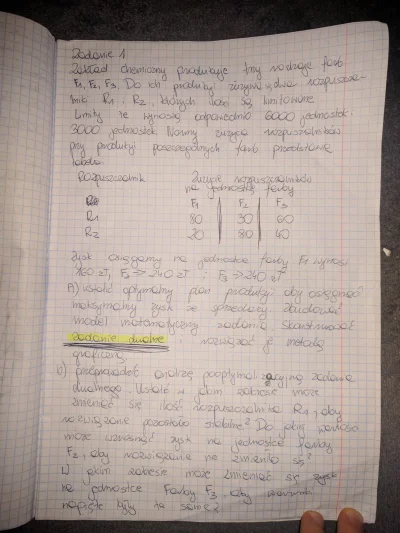 Zadanie 1
Zakład chemiczny produkuje trzy rodzaje farb
F1, F2, F3. Do ich produkcji zużywa się dwa rozpuszcza-
lniki R1 i R2, których ilości są limitowane
Limity te wynoszą odpowiednio 6000 jednostek i
3000 jednostek. Normy zużycia rozpuszczalników
przy produkcji poszczególnych farb przedstawia
tabela.
Rozpuszczalnik Zużycie rozpuszczalników
na jednostkę farby
F1 F2 F3
R1 80 30 60
R2 20 80 40
Zysk osiągany na jednostce farby F1 wynosi
160 zł, F2 → 240 zł i F3 → 240 zł
A) ustalić optymalny plan produkcji aby osiągnąć
maksymalny zysk ze sprzedaży. Zbudować
model matematyczny zadania. Skonstruować
zadanie dualne i rozwiązać je metodą
graficzną.
b) przeprowadź analizę pooptymalizacyjną zadania
dualnego. Ustal w jakim zakresie może
zmieniać się ilość rozpuszczalnika R1, aby
rozwiązanie pozostało stabilne? Do jakiej wartości
może wzrosnąć zysk na jednostce farby
F2, aby rozwiązanie nie zmieniło się?
W jakim zakresie może zmieniać się zysk
na jednostce Farby F3, aby
napięte były te same?